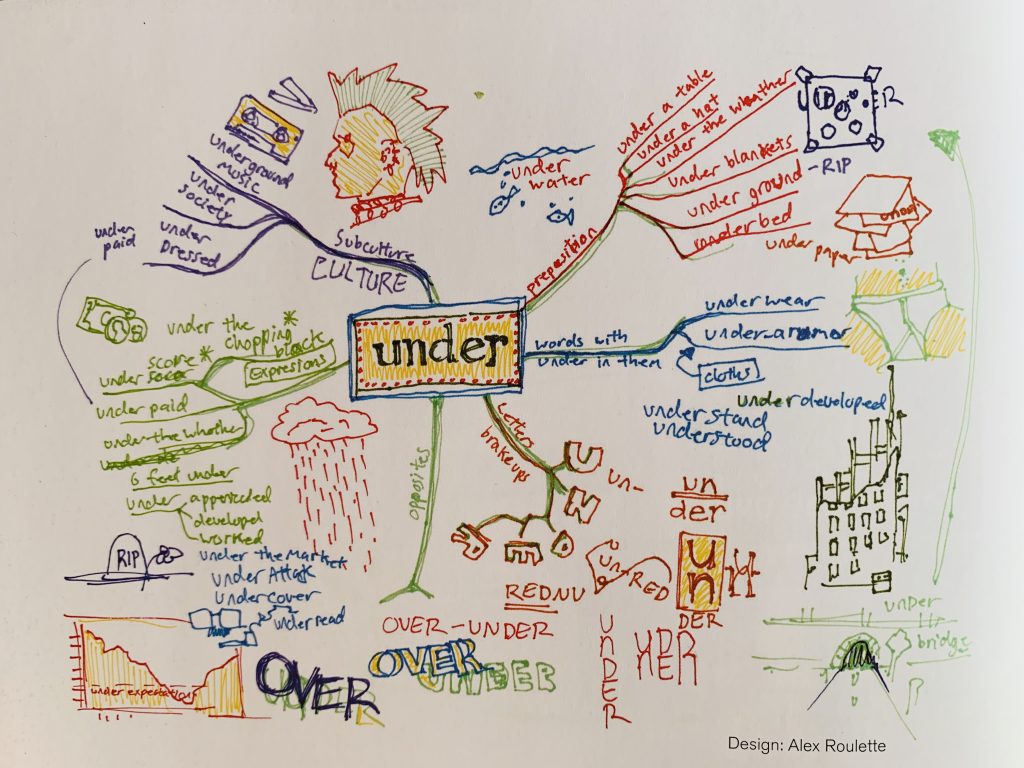 under
Subculture
CULTURE
underground
music
under
society
under
Dressed
under
paid
preposition
under a table
under a hat
under the wheather
under blankets
under ground - RIP
under bed
under paper
under
water
R
words with
under in them
under wear
under-armor
cloths
under developed
under stand
understood
Expresions
under the
chopping
block
score
under
under paid
under the
6 feet under
under
developed
worked
RIP
under the Market
under Attak
under cover
under read
under expectations
opposites
OVER-UNDER
OVER
OVER
UNDER
Letters
brake ups
U
N
D
E
R
un-
un
der
REDNU
un-RED
un
DER
U
N
D
E
R
under
bridge
Design: Alex Roulette